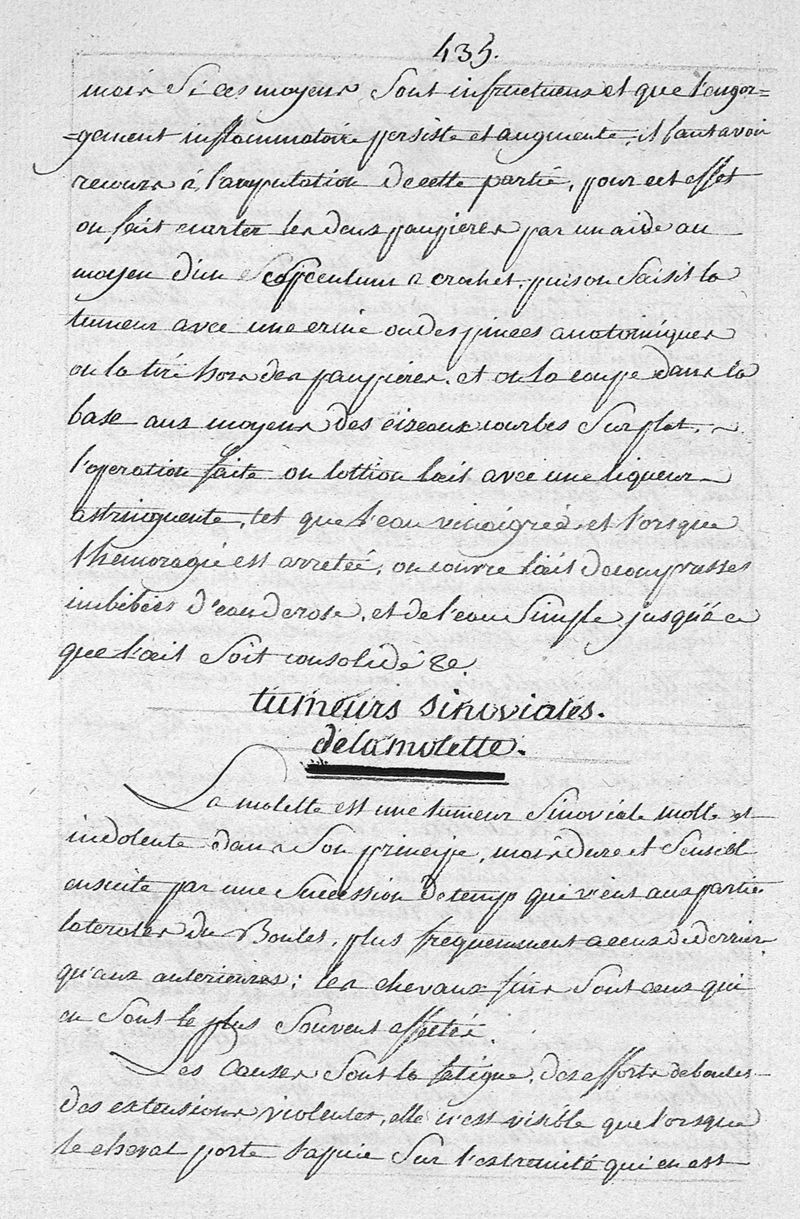 435.
mais Si ces moyens Sont infructueux et que l'engor=
=gement inflammatoire persiste et augmente, il faut avoir
recours à l'amputation de cette partie, pour cet effet
on fait ecarter les deux paupieres par un aide au
moyen d'un a crochet, puis on Saisit la
tumeur avec une erine ou des pinces anatomiques
on la tire hors des paupieres. et on la coupe dans la
base aux moyens des cizeaux courbes Sur plat.
l'operation faite on lottion l'œil avec une liqueur
astringuente, tel que l'eau vinaigrée et l'orsque
l'hemoragie est arretée, on couvre l'œil de compresses
imbibées d'eau de rose, et de l'eau Simple jusqu'à ce
que l'œil Soit consolidé &c.
tumeurs sinoviales.
de la molette.
La molette est une tumeur Sinoviale molle et
indolente dans Son principe, mais dure et Sensibl
ensuite par une Succession de temp qui vient aux partie
laterales du Boulet, plus frequemment a ceux de derrier
qu'aux anterieures; les chevaux fins Sont ceux qui
en Sont le plus Souvent affecté.
Les Causes Sont la fatigue, des efforts de boulet
des extensions violentes, elle n'est visible que l'orsque
le cheval porte l'apuie Sur l'extremité qui en est